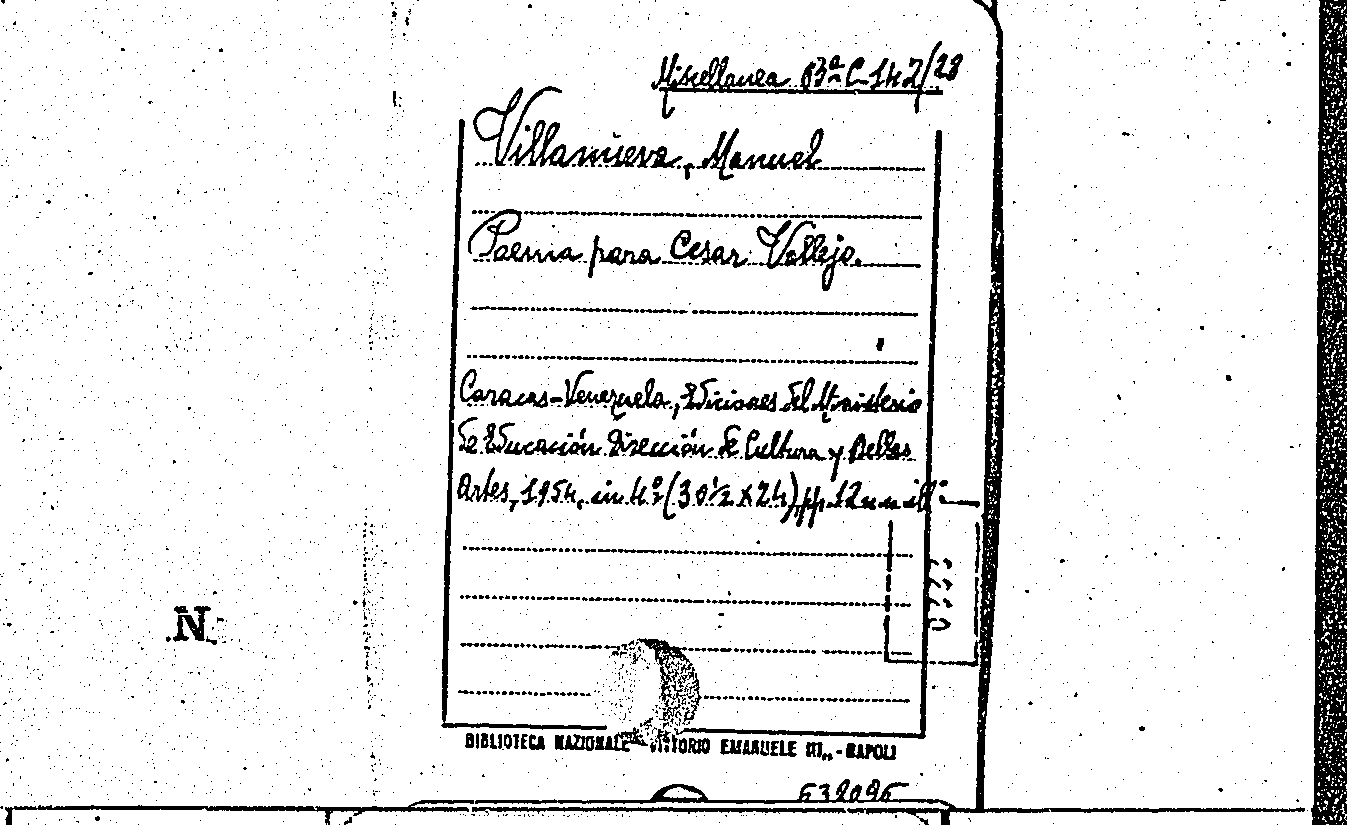 Miscellanea B3ª C 142/28
Villanueva, Manuel
Poema para Cesar Vallejo.
Caracas-Venezuela, Ediciones del Ministerio
de Educación Dirección de Cultura y Bellas
Artes, 1954, in 4º (30½ x 24), pp. 12 n n ill.
N
BIBLIOTECA NAZIONALE VITTORIO EMANUELE III„ - NAPOLI